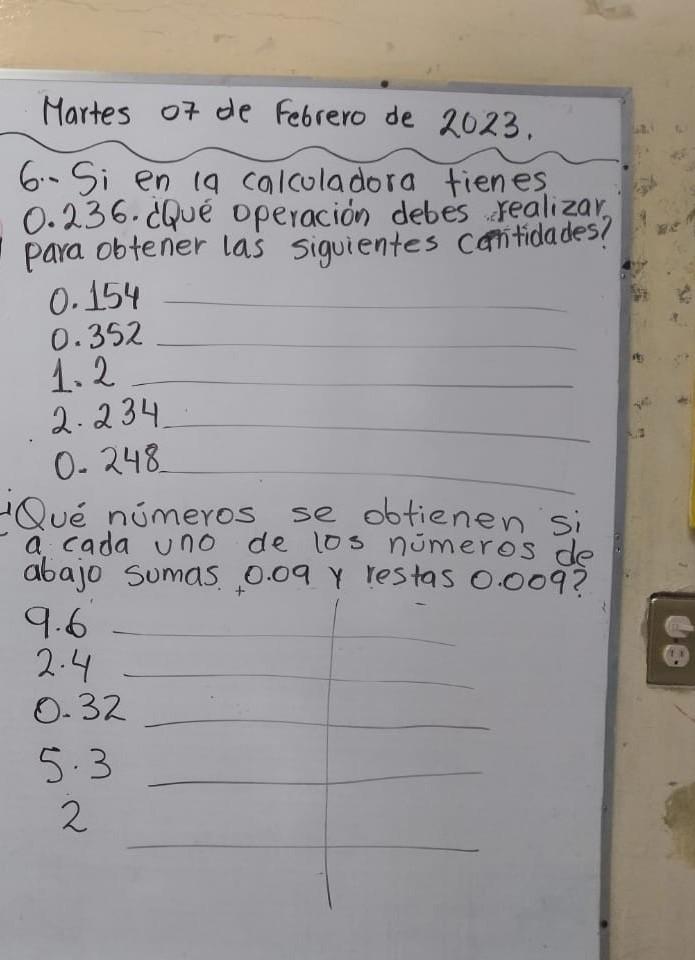 Martes 07 de Febrero de 2023.
6.- Si en la calculadora tienes
0.236. ¿Qué operación debes realizar
para obtener las siguientes cantidades?
0.154
0.352
1.2
2.234
0.248
¿Qué números se obtienen si
a cada uno de los números de
abajo sumas 0.09 y restas 0.009?
+ -
9.6
2.4
0.32
5.3
2